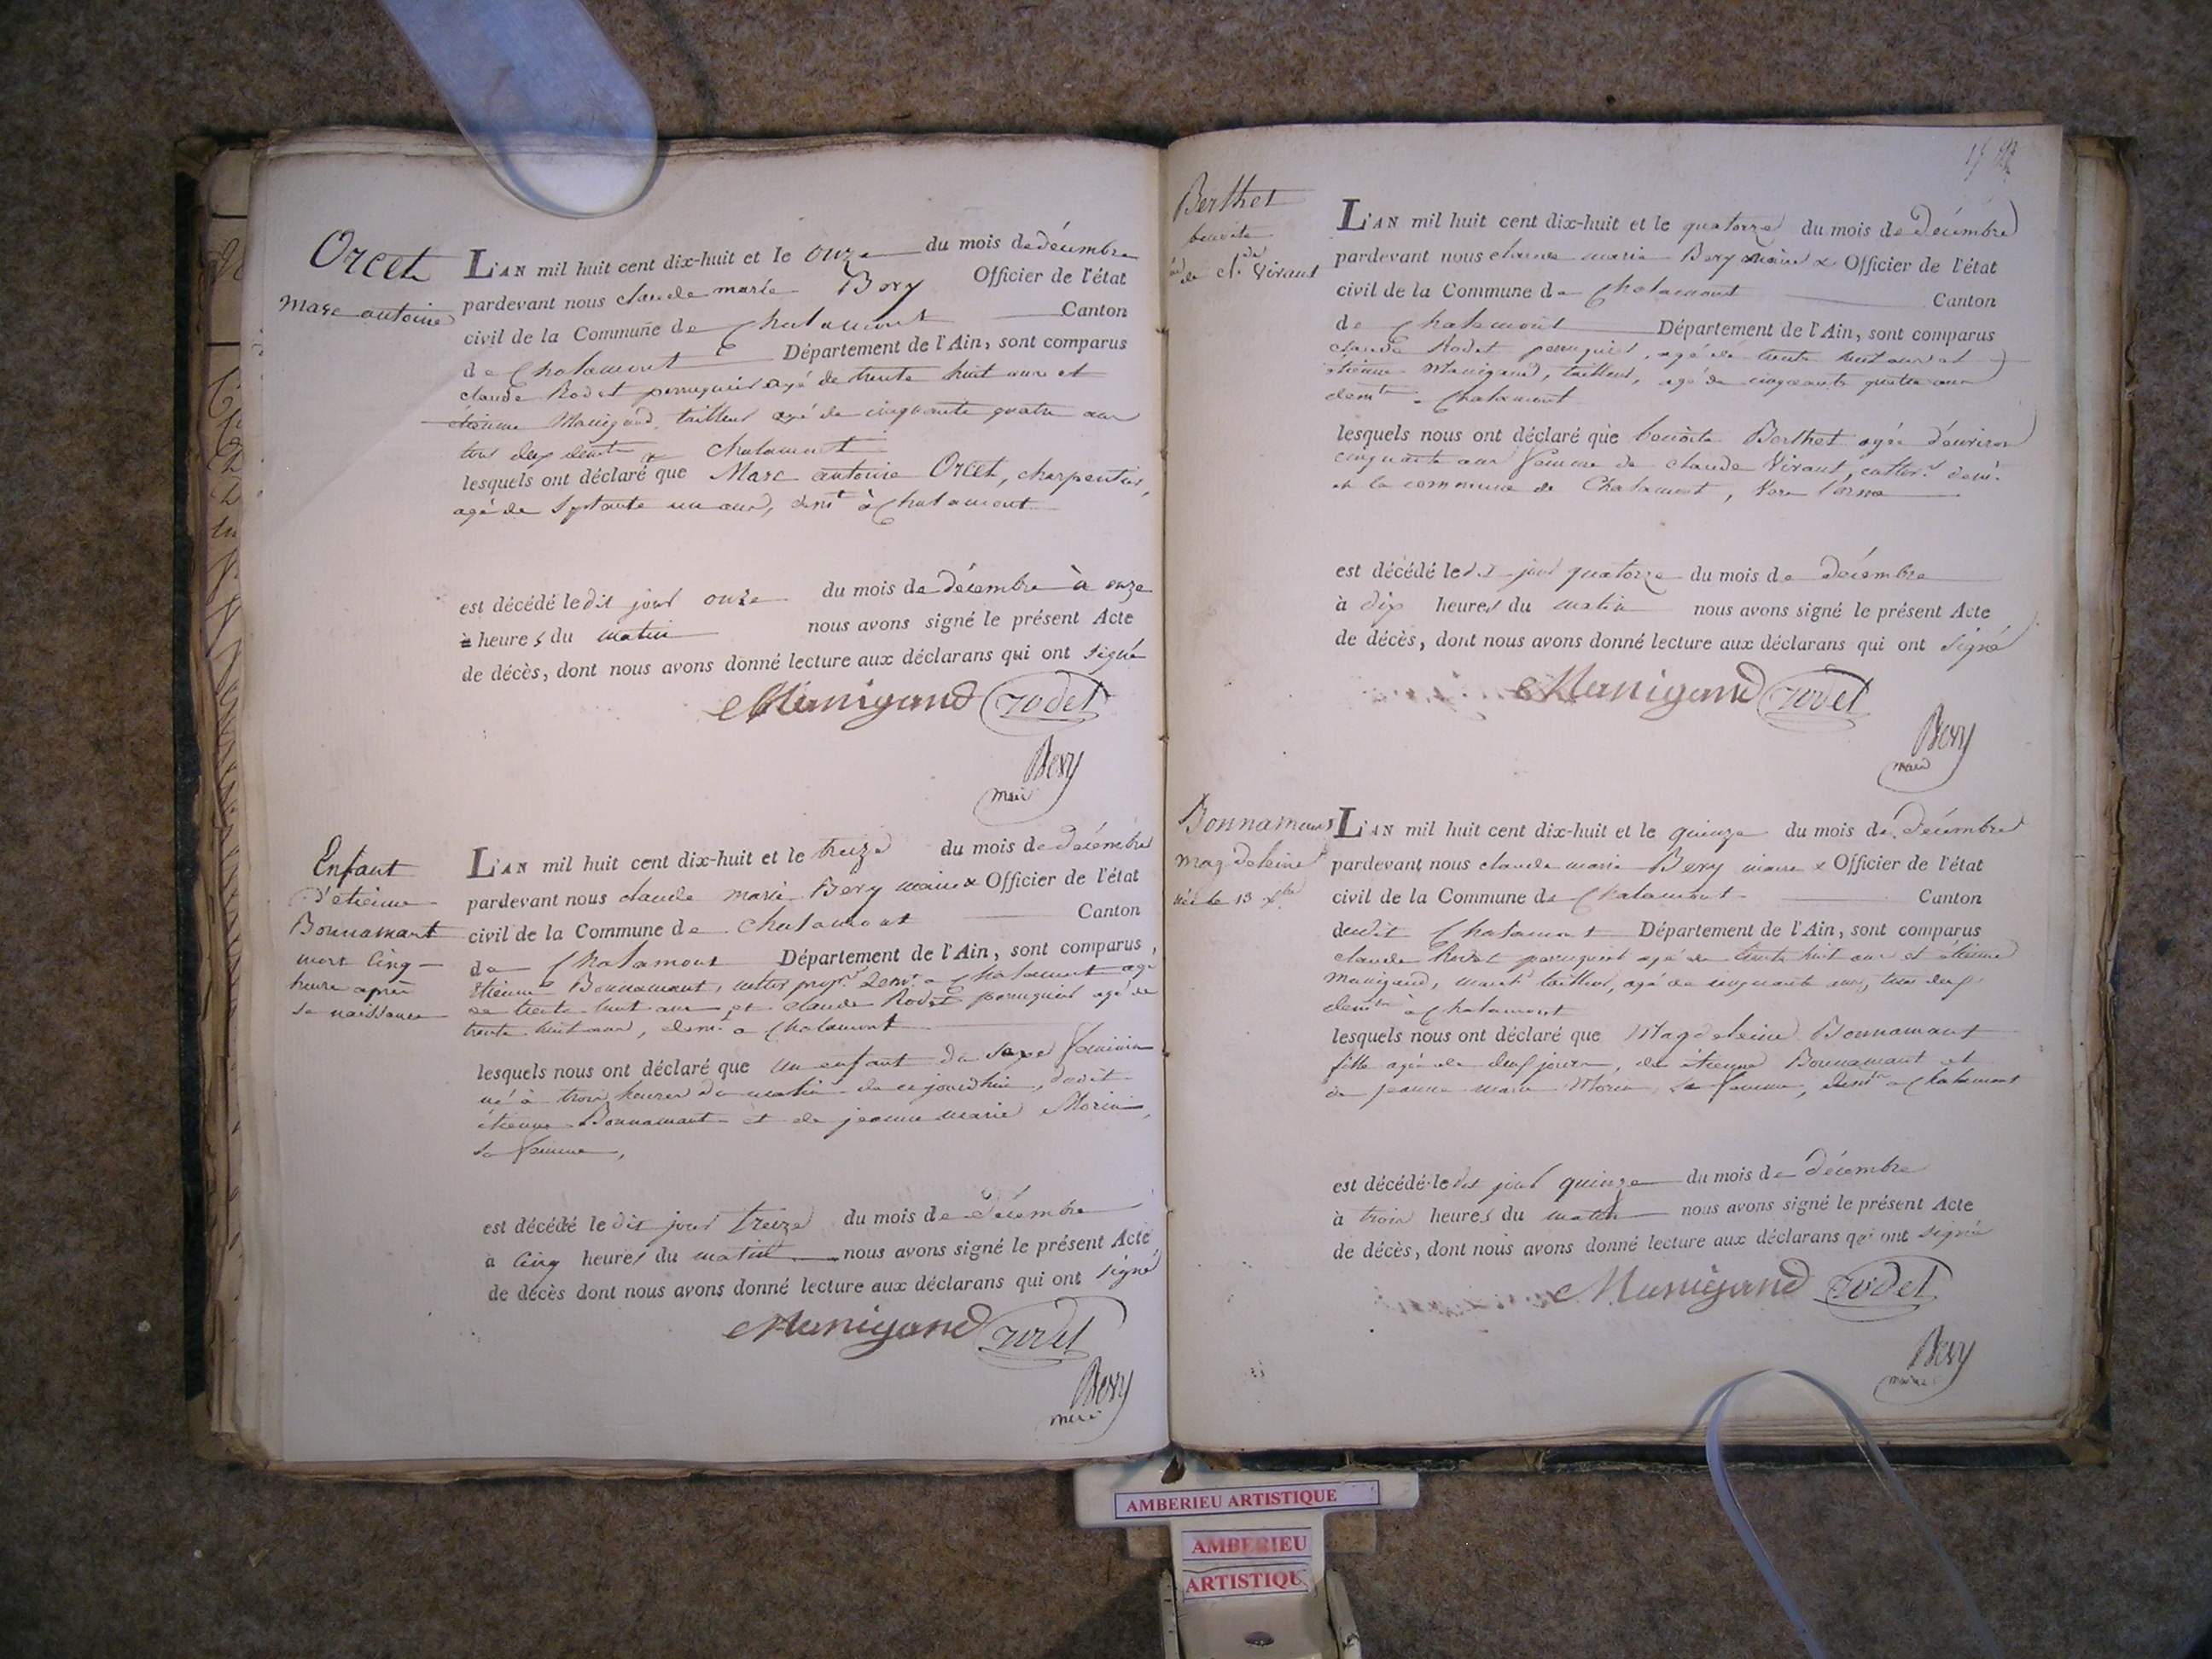 Orcet
Marc antoine
L'AN mil huit cent dix-huit et le onze du mois de décembre
pardevant nous claude marie Bery Officier de l'état
civil de la Commune de Chalamont Canton
de Chalamont Département de l'Ain, sont comparus
claude Rodet perruquier agé de trente huit ans et
étienne Manigand, tailleur agé de cinquante quatre ans
tous deux demt à chalamont
lesquels ont déclaré que Marc antoine Orcet, charpentier,
agé de septante un ans, demt à Chalamont
est décédé le dit jour onze du mois de décembre à onze
heures du matin nous avons signé le présent Acte
de décès, dont nous avons donné lecture aux déclarans qui ont signé
Manigand Rodet
Bery
maire
Enfant
d'étienne
Bonnamant
mort cinq
heure après
sa naissance
L'AN mil huit cent dix-huit et le treize du mois de décembre
pardevant nous claude marie Bery maire & Officier de l'état
civil de la Commune de Chalamont Canton
de Chalamont Département de l'Ain, sont comparus,
étienne Bonnamant, demt à Chalamont agé
de trente huit ans et claude Rodet perruquier agé de
trente huit ans, demt à Chalamont
lesquels nous ont déclaré que un enfant du sexe féminin
né à trois heures du matin de ce jourdhui, dudit
étienne Bonnamant et de jeanne marie Morin,
sa femme,
est décédé le dit jour treize du mois de décembre
à cinq heures du matin nous avons signé le présent Acte
de décès dont nous avons donné lecture aux déclarans qui ont signé
Manigand Rodet
Bery
maire
Berthet
benoite
de Cl. Vivant
L'AN mil huit cent dix-huit et le quatorze du mois de décembre
pardevant nous claude marie Bery maire & Officier de l'état
civil de la Commune de Chalamont Canton
de Chalamont Département de l'Ain, sont comparus
claude Rodet perruquier, agé de trente huit ans et
étienne Manigand, tailleur, agé de cinquante quatre ans
demt à Chalamont
lesquels nous ont déclaré que benoite Berthet agée d'environ
cinquante ans femme de claude Vivant, cultivr demt
en la commune de Chalamont,
est décédé le dit jour quatorze du mois de décembre
à dix heures du matin nous avons signé le présent Acte
de décès, dont nous avons donné lecture aux déclarans qui ont signé
Manigand Rodet
Bery
maire
Bonnamant
magdeleine
née le 13 xbre
L'AN mil huit cent dix-huit et le quinze du mois de décembre
pardevant nous claude marie Bery maire & Officier de l'état
civil de la Commune de Chalamont Canton
dudit Chalamont Département de l'Ain, sont comparus
claude Rodet perruquier agé de trente huit ans et étienne
Manigand, tailleur, agé de cinquante ans, tous deux
demt à Chalamont
lesquels nous ont déclaré que Magdeleine Bonnamant
fille agée de deux jours, de étienne Bonnamant et
de jeanne marie Morin, sa femme, demt à Chalamont
est décédé le dit jour quinze du mois de décembre
à trois heures du matin nous avons signé le présent Acte
de décès, dont nous avons donné lecture aux déclarans qui ont signé
Manigand Rodet
Bery
maire
AMBERIEU ARTISTIQUE
AMBERIEU
ARTISTIQU